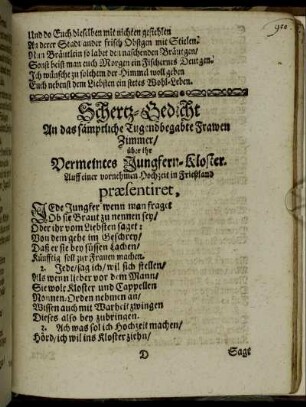 Und do Euch dieselben mit nichten gefehlen
An derer Stadt ander frisch Obstgen mit Stielen:
Der Bräutlein so labet den naschenden Bräutgen/
Sonst heist man euch Morgen ein Fischernes Deutgen.
Ich wünsche zu solchem der Himmel woll geben
Euch nebenst dem Liebsten ein stetes Wohl-Leben.
Schertz-Gedicht
An das sämptliche Tugendbegabte Frawen
Zimmer/
über ihr
Vermeintes Jungfern-Kloster.
Auff einer vornehmen Hochzeit in Frießland
præsentiret.
JEde Jungfer wenn man fraget
Ob sie Braut zu nennen sey/
Oder ihr vom Liebsten saget:
Von dem gehe im Geschrey/
Daß er sie bey süssen Lachen/
Künfftig soll zur Frauen machen.
2. Jede/sag ich/wil sich stellen/
Als wenn lieber vor dem Mann/
Sie wolt Kloster und Cappellen
Nonnen-Orden nehmen an/
Wissen auch mit Warheit zwingen
Dieses also bey zubringen.
3. Ach was sol ich Hochzeit machen/
Hört/ich wil ins Kloster ziehn/
D
Sagt